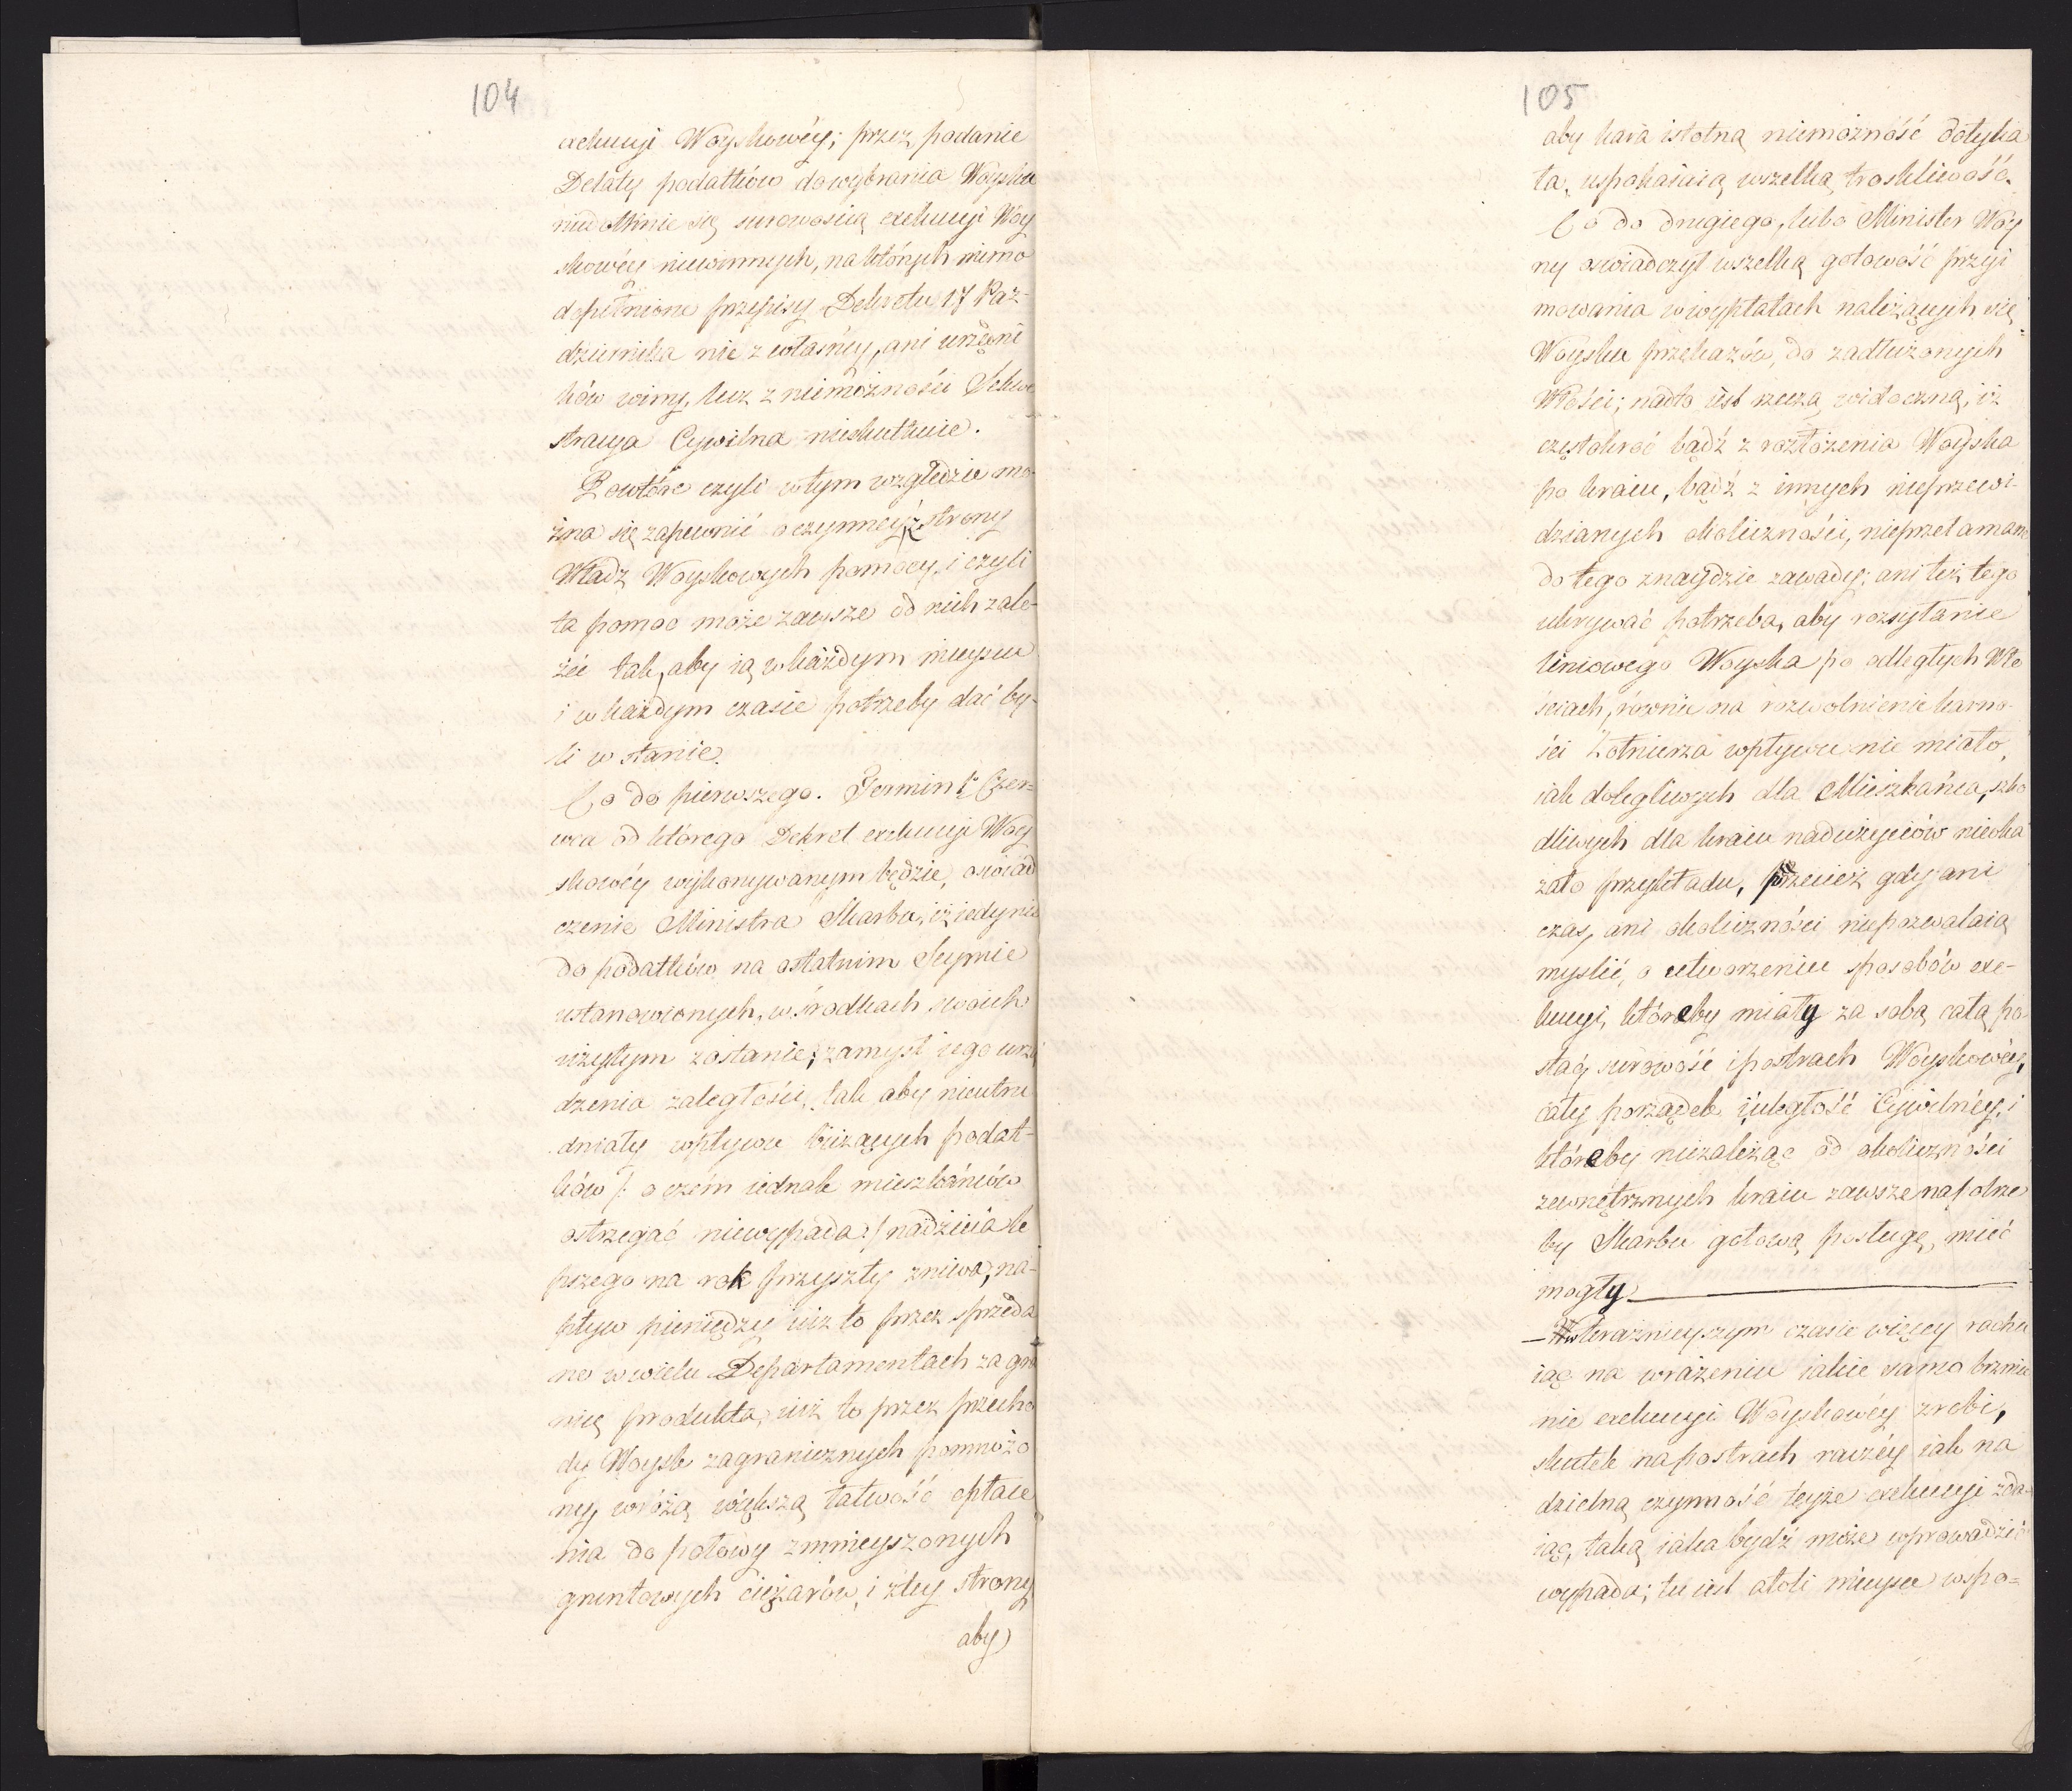 104
aekucyi Woyskowéy; przez podanie
Delaty podatków do wybrania Woysku
niedotknie się surowością exekucyi Woy
skowéy niewinnych, na których mimo
dopełnione przepisy Dekretu 17 Paź-
dziernika nie z własnéy, ani urzędni
ków winy, lecz z niemożności Sekwe
stracya Cywilna nieskutkuie.
Powtóre czyli w tym względzie mo-
żna się zapewnić o czynnéy z strony
Władz Woyskowych pomocy, i czyli
ta pomoc może zawsze od nich zale-
żéć tak, aby ią w każdym mieyscu
i w każdym czasie potrzeby dać by-
li w stanie.
Co do pierwszego. Termin 1º Czer-
wca od którego Dekret exekucyi Woy
skowéy wykonywanym będzie, oświad
czenie Ministra Skarbu, iż iedynie
do podatków na ostatnim Seymie
ustanowionych, w środkach swoich
użytym zostanie, zamysł iego urzą
dzenia zaległości, tak aby nieutru
dniały wpływu bieżących podat-
ków /: o czem iednak mieszkańców
ostrzegać niewypada :/ nadzieia le
pszego na rok przyszły zniwa, na-
pływ pieniędzy iuż to przez sprzeda
ne w wielu Departamentach za gra
nicę produkta, iuż to przez przecho
dy Woysk zagranicznych pomnożo
ny, wróżą większą łatwość opłace
nia do połowy zmnieyszonych
gruntowych ciężarów, i z téy strony
aby
105
aby kara istotną niemożność dotyka
ła, uspokaiaią wszelką troskliwość.
Co do drugiego, lubo Minister Woy
ny oświadczył wszelką gotowość przyi
mowania w wypłatach należących się
Woysku przekazów, do zadłużonych
Włości; nadto iest rzeczą widoczną, iż
częstokroć bądź z rozłożenia Woyska
po kraiu, bądź z innych nieprzewi-
dzianych okoliczności, nieprzełamane
do tego znaydzie zawady; ani też tego
ukrywać potrzeba, aby rozsyłanie
liniowego Woyska po odległych Wło
ściach, równie na rozwolnienie karno-
ści Żołnierza wpływu nie miało,
iak dolegliwych dla Mieszkańca, szko
dliwych dla kraiu nadużyciów nieoka
zało przykładu, przecież gdy ani
czas, ani okoliczności niepozwalaią
myslić, o utworzeniu sposobów exe-
kucyi, któreby miały za sobą całą po
stać surowość i postrach Woyskowéy,
cały porządek i uległość Cywilnéy, i
któreby niezależąc od okoliczności
zewnętrznych kraiu zawsze na potrze
by Skarbu gotową posługę, mieć
mogły
W teraźnieyszym czasie więcey rachu
iąc na wrażeniu iakie samo brzmie
nie exekucyi Woyskowéy zrobi,
skutek na postrach raczéy iak na
dzielną czynność teyże exekucyi zda-
iąc, taką iaka bydź może wprowadzić
wypada; tu iest atoli mieysce wspo-